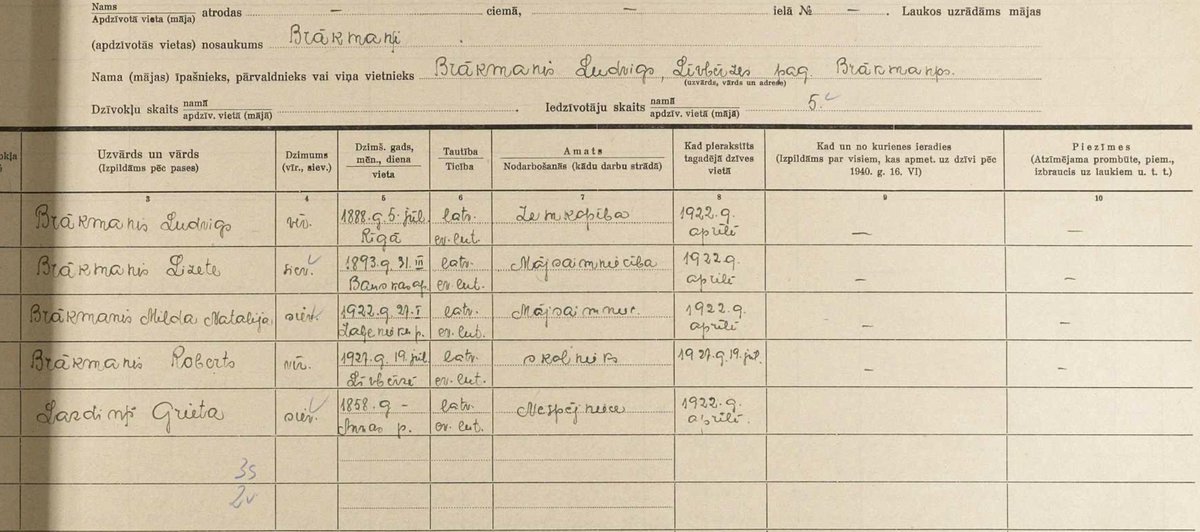 Nams
Apdzīvotā vieta (māja) atrodas — ciemā, — ielā № — . Laukos uzrādāms mājas
(apdzīvotās vietas) nosaukums Brākmaņi
Nama (mājas) īpašnieks, pārvaldnieks vai viņa vietnieks Brākmanis Ludvigs, Līvbērzes pag. Brākmaņos.
(uzvārds, vārds un adrese)
Dzīvokļu skaits namā Iedzīvotāju skaits namā 5.
apdzīv. vietā (mājā) apdzīv. vietā (mājā)
Uzvārds un vārds
(Izpildāms pēc pases)
Dzimums
(vīr., siev.)
Dzimš. gads,
mēn., diena
vieta
Tautība
Ticība
Amats
Nodarbošanās (kādu darbu strādā)
Kad pierakstīts
tagadējā dzīves
vietā
Kad un no kurienes ieradies
(Izpildāms par visiem, kas apmet. uz dzīvi pēc
1940. g. 16. VI)
Piezīmes
(Atzīmējama prombūte, piem.,
izbraucis uz laukiem u. t. t.)
3 4 5 6 7 8 9 10
Brākmanis Ludvigs vīr. 1888.g. 5. jūl. latv. Zemkopība 1922.g. — —
Rīgā ev.lut. aprīlī
Brākmanis Lizete siev. 1893.g. 31. III latv. Mājsaimniecība 1922.g. — —
Bauskas ap. ev.lut. aprīlī
Brākmanis Milda Natalija siev. 1922.g. 27. I latv. Mājsaimniec. 1922.g. — —
p. ev.lut. aprīlī
Brākmanis Roberts vīr. 1927.g. 19. jūl. latv. skolnieks 1927.g. 19. jūl. — —
Līvbērzē ev.lut.
Grieta siev. 1858.g — latv. Nespējniece 1922.g.
p. ev.lut. aprīlī.
3s
2v